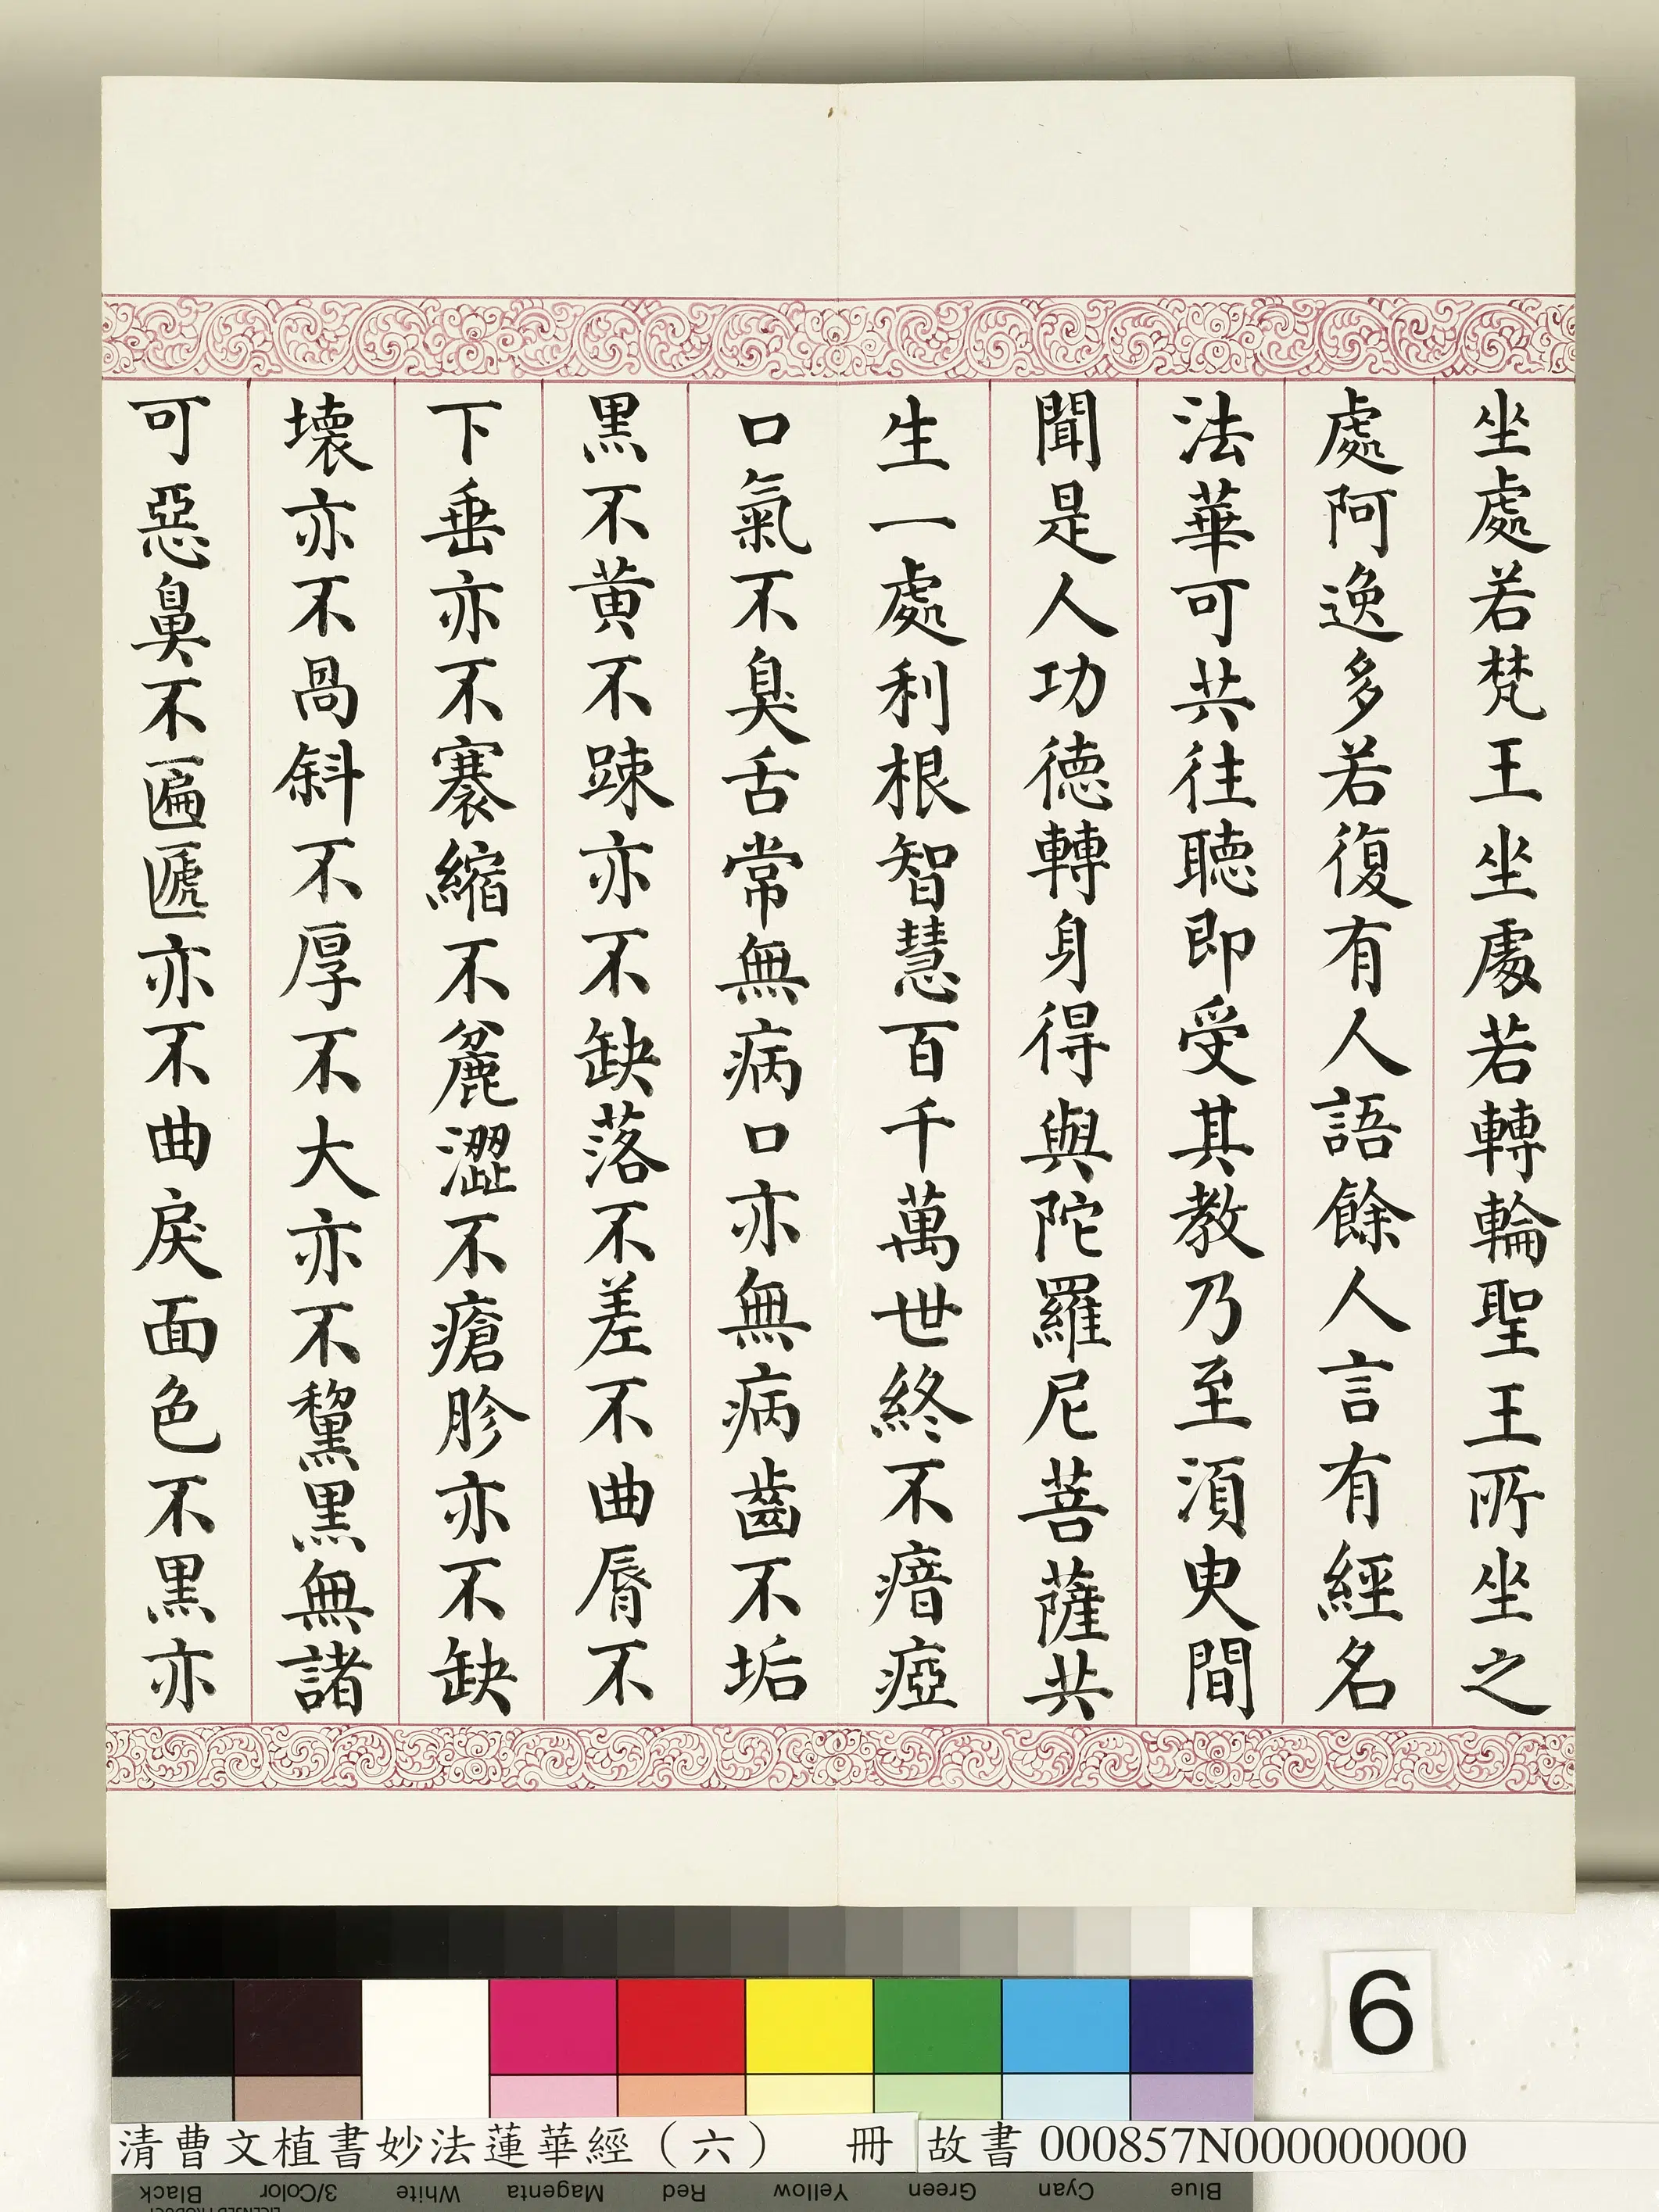 坐處若梵王坐處若轉輪聖王所坐之
處阿逸多若復有人語餘人言有經名
法華可共往聽即受其教乃至須臾間
聞是人功德轉身得與陀羅尼菩薩共
生一處利根智慧百千萬世終不瘖瘂
口氣不臭舌常無病口亦無病齒不垢
黑不黃不踈亦不缺落不差不曲脣不
下垂亦不褰縮不麁澀不瘡胗亦不缺
壞亦不咼斜不厚不大亦不黧黑無諸
可惡鼻不匾㔸亦不曲戾面色不黑亦
6
清曹文植書妙法蓮華經(六) 冊 故書 000857N000000000
Black 3/Color White Magenta Red Yellow Green Cyan Blue